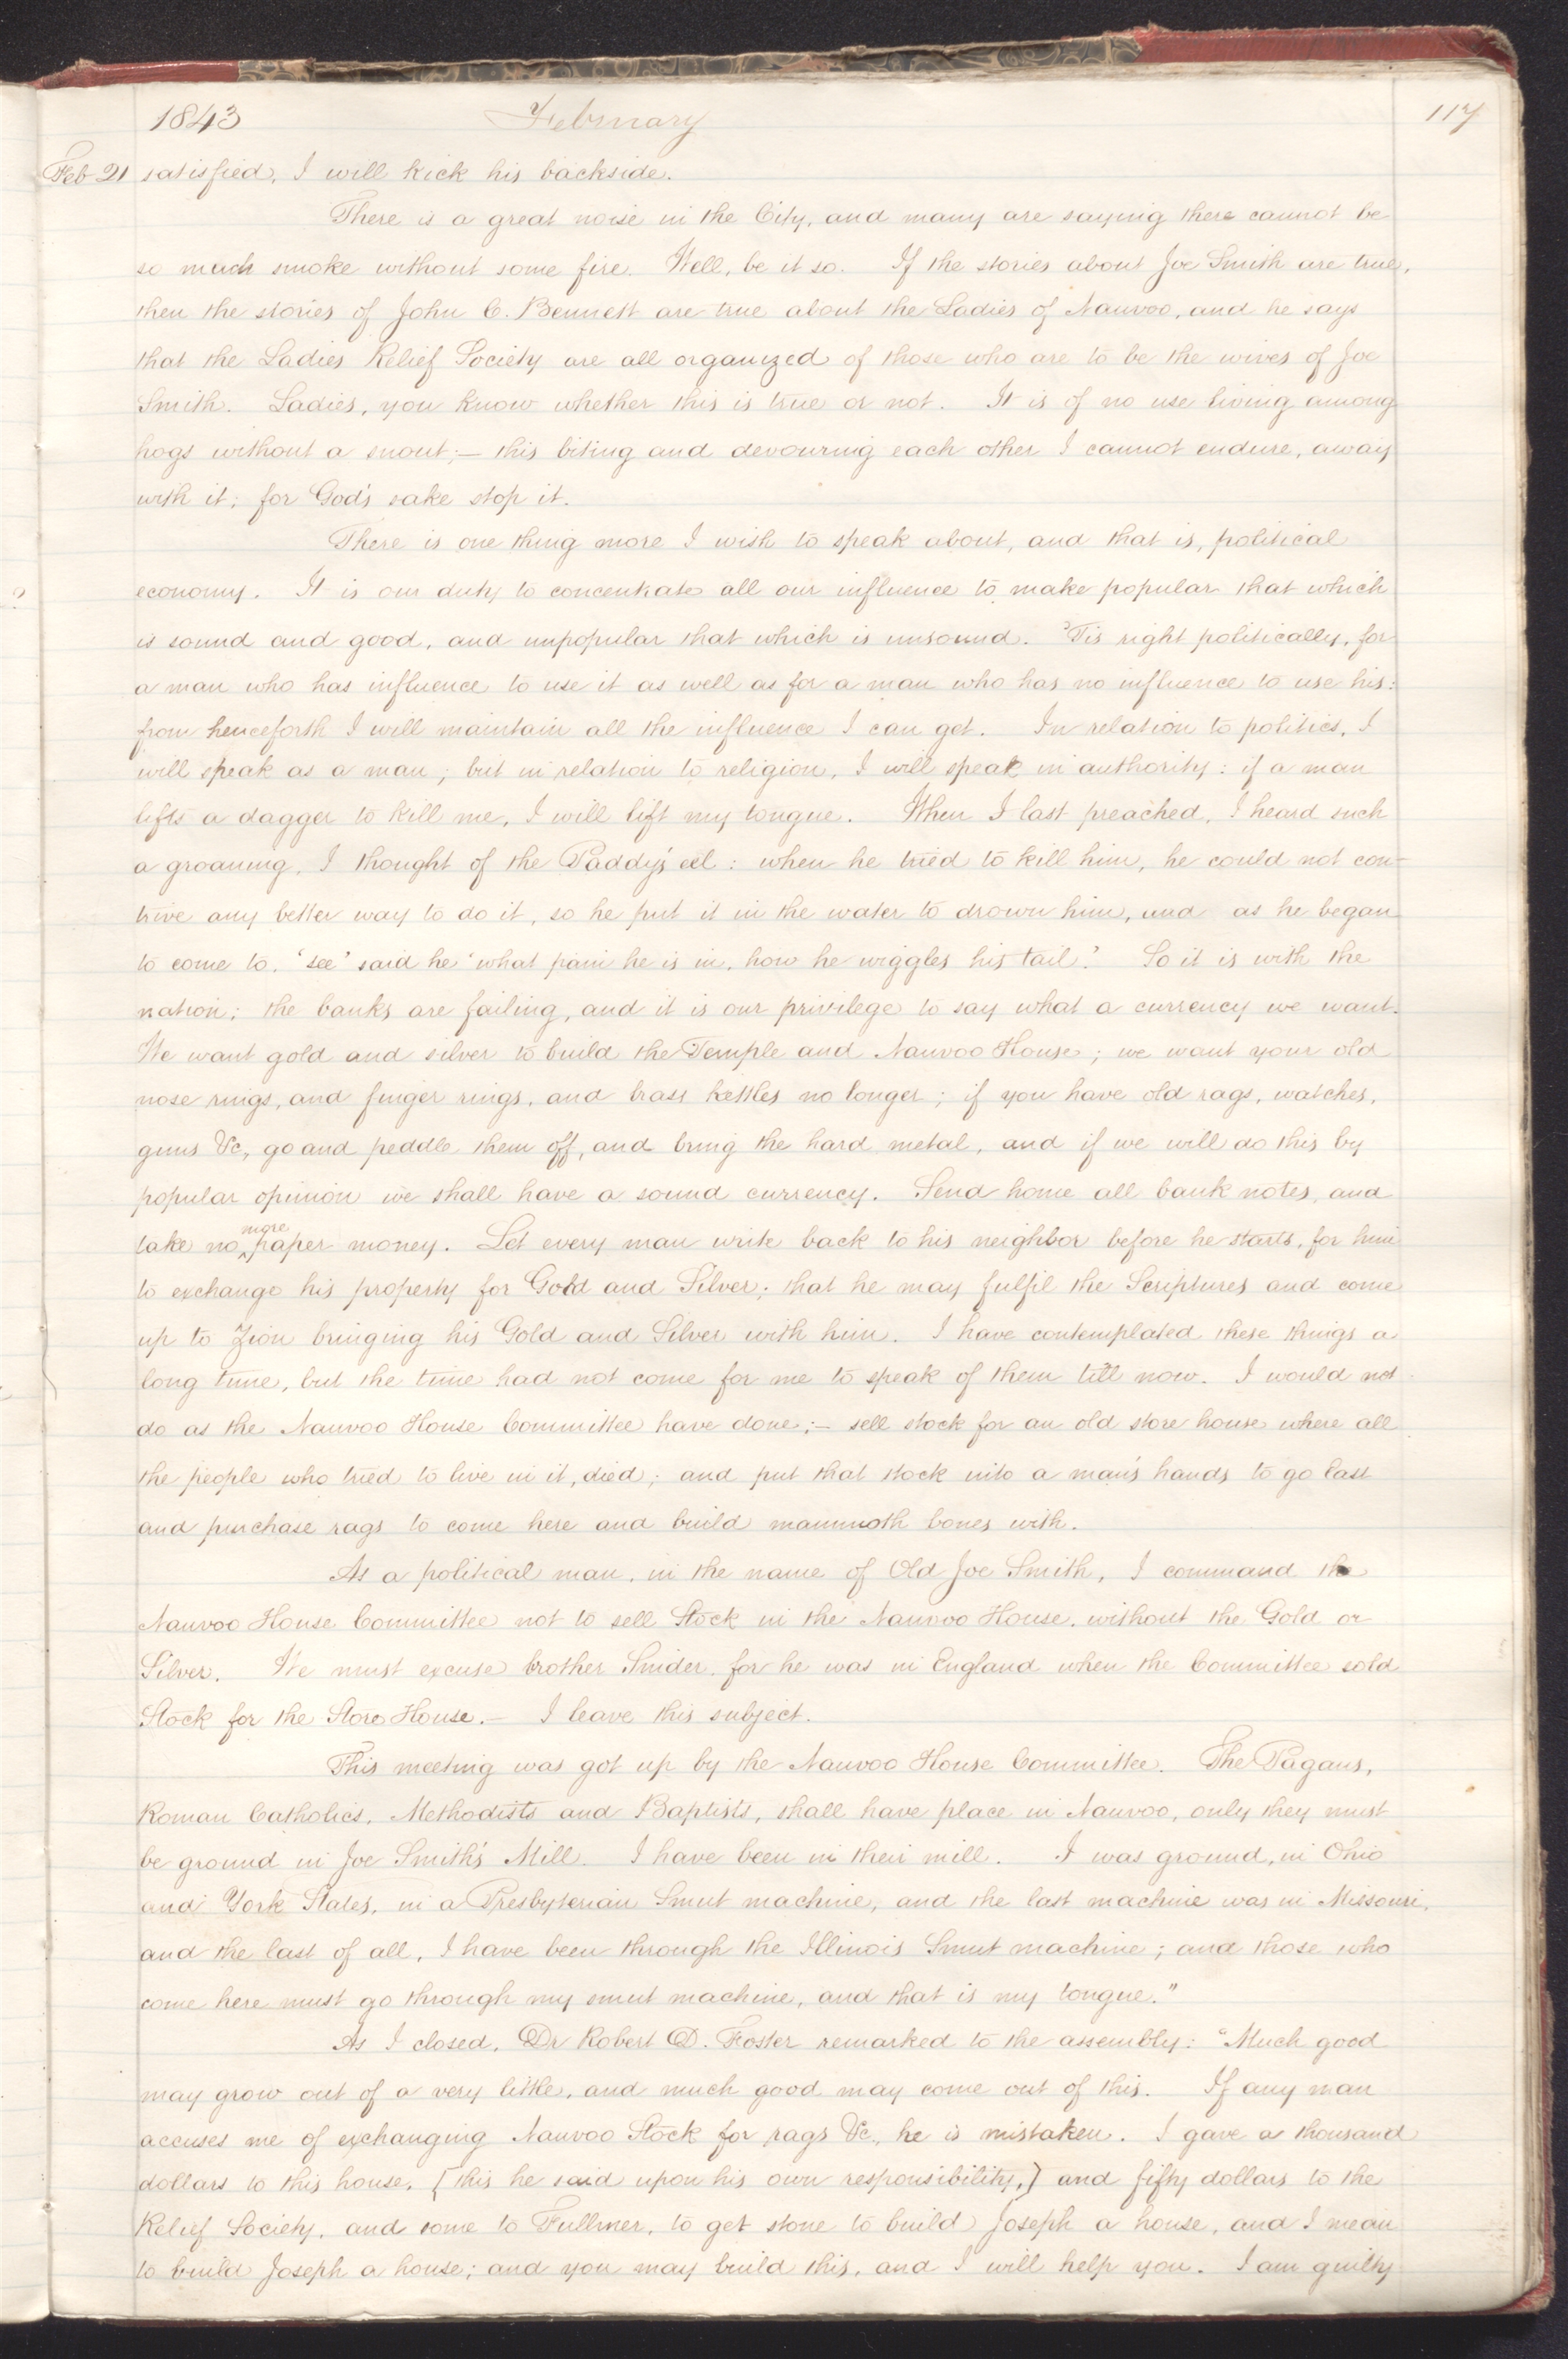 1843 February 117
Feb 21 satisfied, I will kick his backside.
There is a great noise in the City, and many are saying there cannot be
so much smoke without some fire. Well, be it so. If the stories about Joe Smith are true,
then the stories of John C. Bennett are true about the Ladies of Nauvoo, and he says
that the Ladies Relief Society are all organized of those who are to be the wives of Joe
Smith. Ladies, you know whether this is true or not. It is of no use living among
hogs without a snout;— this biting and devouring each other I cannot endure, away
with it; for God's sake stop it.
There is one thing more I wish to speak about, and that is, political
economy. It is our duty to concentrate all our influence to make popular that which
is sound and good, and unpopular that which is unsound. 'Tis right politically, for
a man who has influence to use it as well as for a man who has no influence to use his:
from henceforth I will maintain all the influence I can get. In relation to politics, I
will speak as a man; but in relation to religion, I will speak in authority: if a man
lifts a dagger to kill me, I will lift my tongue. When I last preached, I heard such
a groaning, I thought of the Paddy's eel: when he tried to kill him, he could not con-
trive any better way to do it, so he put it in the water to drown him, and as he began
to come to, 'see' said he 'what pain he is in, how he wiggles his tail.' So it is with the
nation; the banks are failing, and it is our privilege to say what a currency we want.
We want gold and silver to build the Temple and Nauvoo House; we want your old
nose rings, and finger rings, and brass kettles no longer; if you have old rags, watches,
guns &c, go and peddle them off, and bring the hard metal, and if we will do this by
popular opinion we shall have a sound currency. Send home all bank notes, and
take no more paper money. Let every man write back to his neighbor before he starts, for him
to exchange his property for Gold and Silver; that he may fulfil the Scriptures and come
up to Zion bringing his Gold and Silver with him. I have contemplated these things a
long time, but the time had not come for me to speak of them till now. I would not
do as the Nauvoo House Committee have done;— sell stock for an old store house where all
the people who tried to live in it, died; and put that stock into a man's hands to go East
and purchase rags to come here and build mammoth bones with.
As a political man, in the name of Old Joe Smith, I command the
Nauvoo House Committee not to sell Stock in the Nauvoo House, without the Gold or
Silver. We must excuse brother Snider, for he was in England when the Committee sold
Stock for the Store House.— I leave this subject.
This meeting was got up by the Nauvoo House Committee. The Pagans,
Roman Catholics, Methodists and Baptists, shall have place in Nauvoo, only they must
be ground in Joe Smith's Mill. I have been in their mill. I was ground, in Ohio
and York States, in a Presbyterian Smut machine, and the last machine was in Missouri,
and the last of all, I have been through the Illinois Smut machine; and those who
come here must go through my smut machine, and that is my tongue."
As I closed, Dr Robert D. Foster remarked to the assembly: "Much good
may grow out of a very little, and much good may come out of this. If any man
accuses me of exchanging Nauvoo Stock for rags &c., he is mistaken. I gave a thousand
dollars to this house, [this he said upon his own responsibility,] and fifty dollars to the
Relief Society, and some to Fullmer, to get stone to build Joseph a house, and I mean
to build Joseph a house; and you may build this, and I will help you. I am guilty